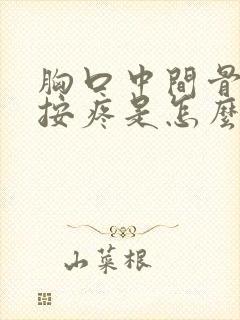 胸口中間骨
按疼是怎麼
山菜根